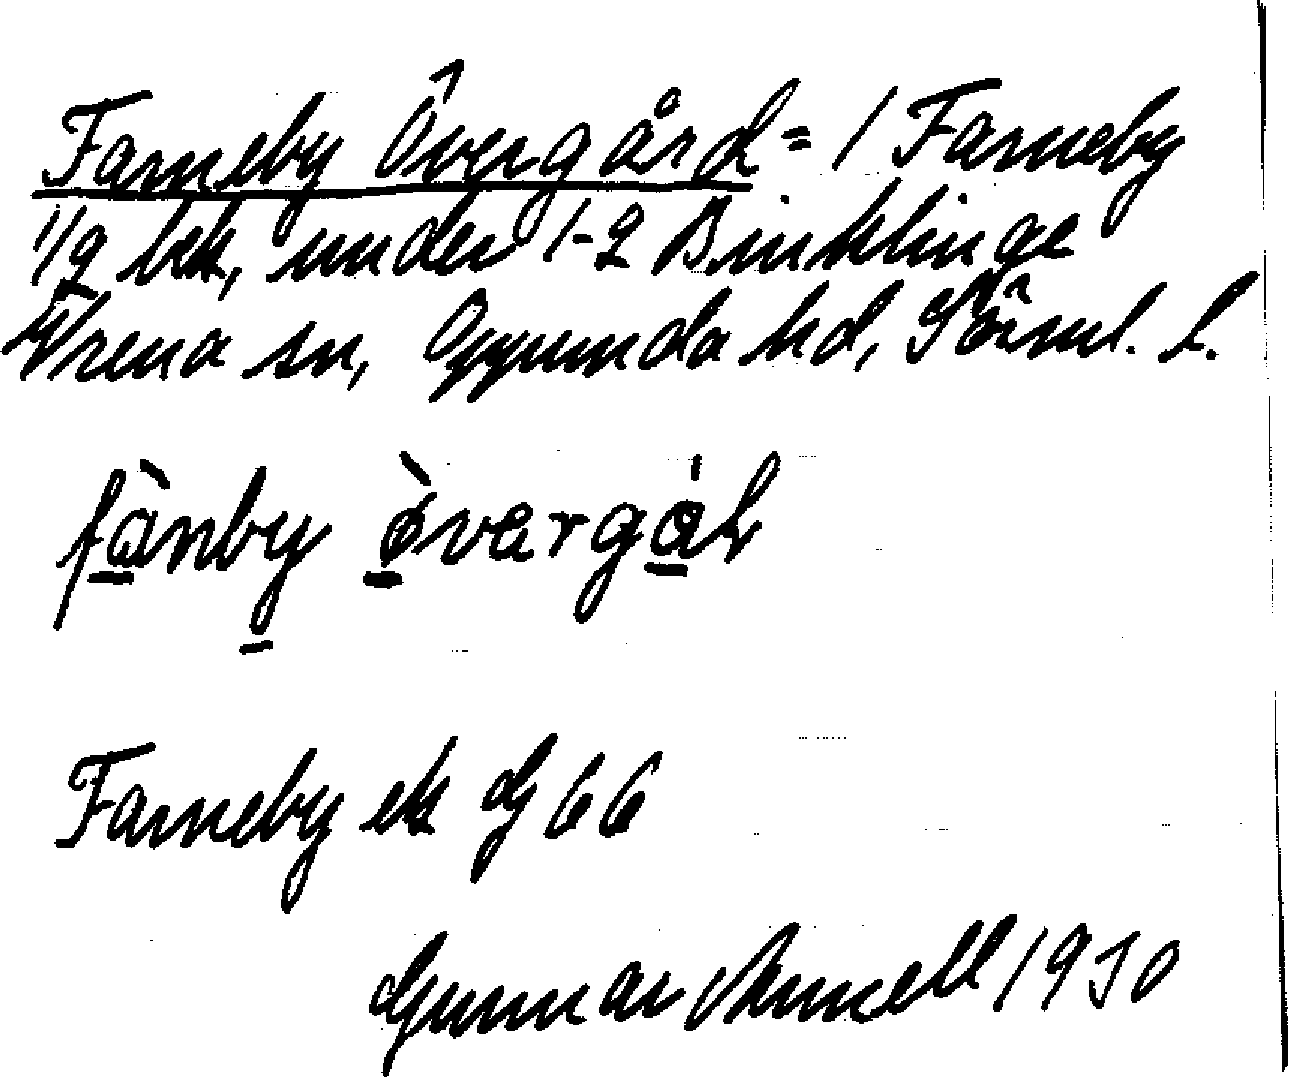 Farneby Övergård = 1 Farneby
1/2 bek, under 1-2 Binklinge
Vrena sn, Oppunda hd, Söml. l.
fànby ø̀vərgɑ́ɽ
Farneby ek dg 66
Gunnar 1930